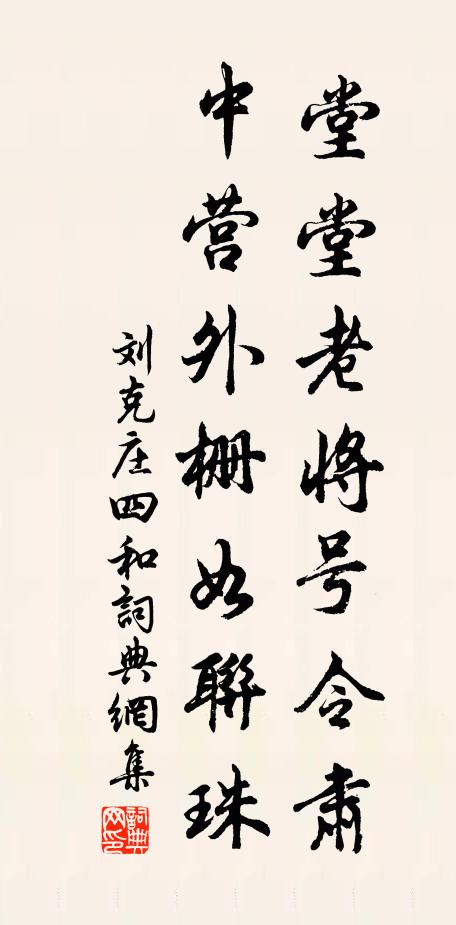 堂堂老将号令肅
中营外栅如聯珠
刘克庄四和詞典網集